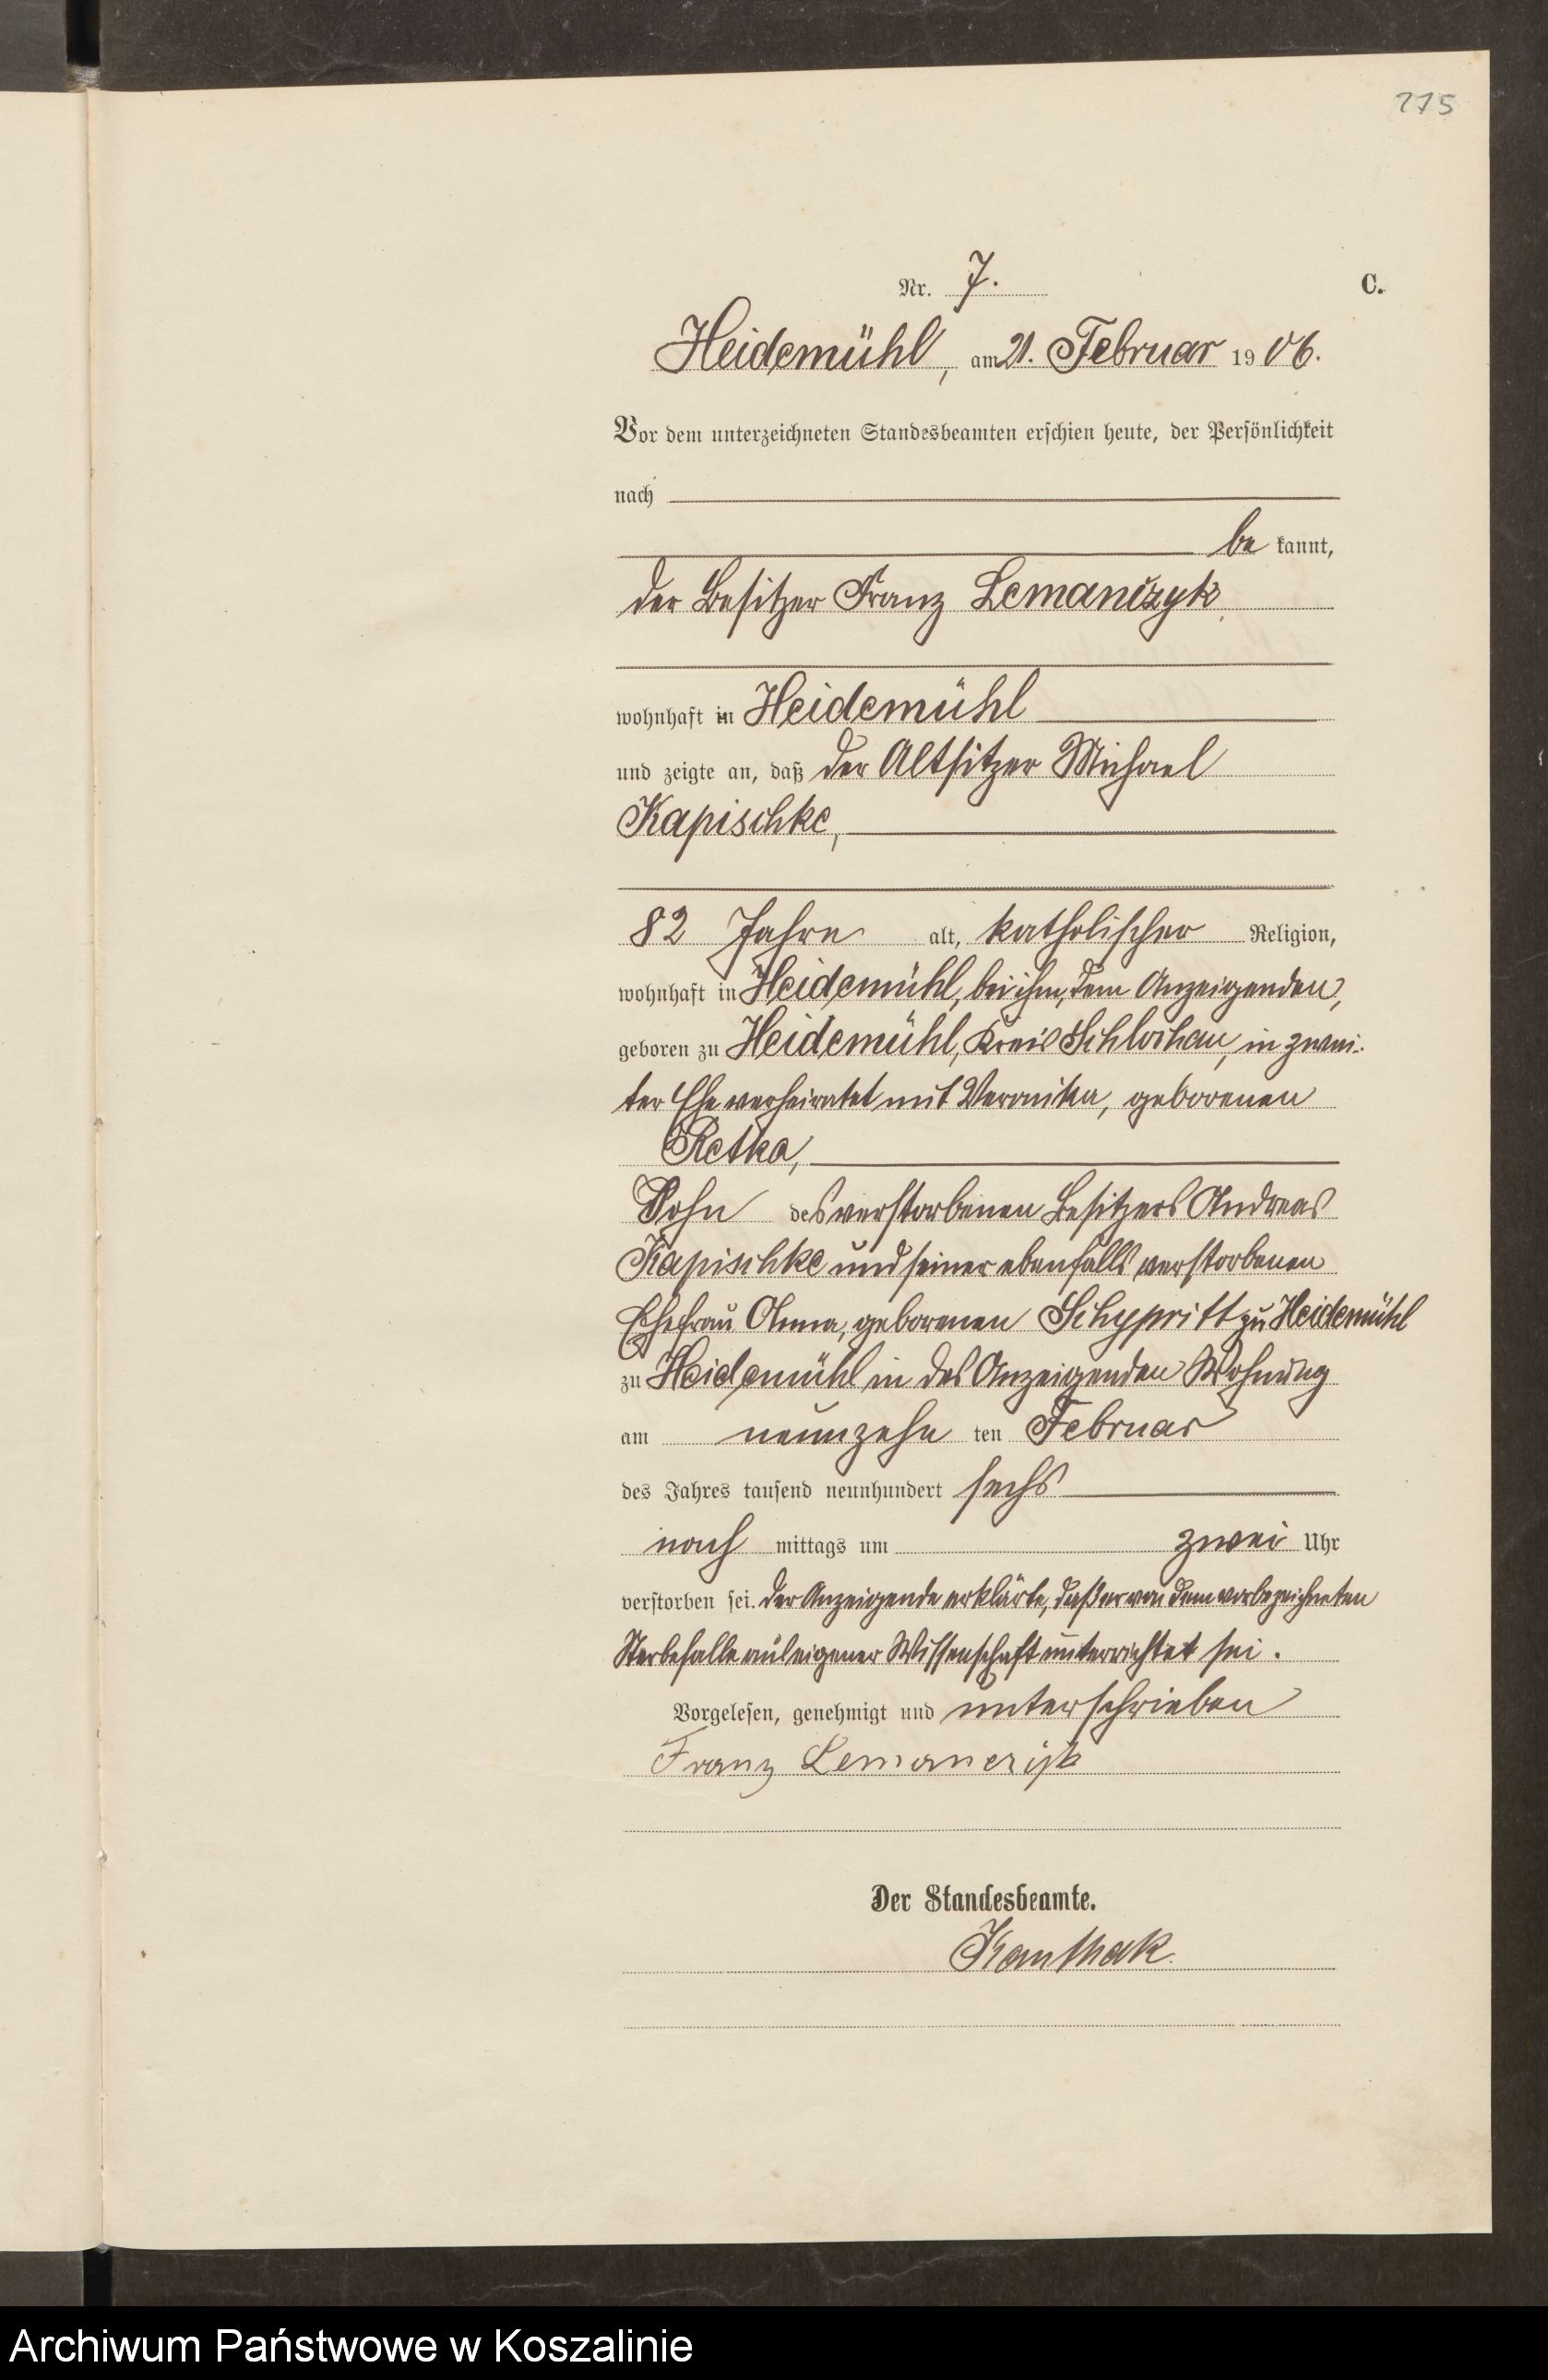 275
Nr. 7. C.
Heidemühl, am 21. Februar 1906.
Vor dem unterzeichneten Standesbeamten erschien heute, der Persönlichkeit
nach
be kannt,
der Besitzer Franz Lemanczyk
wohnhaft in Heidemühl
und zeigte an, daß der Altsitzer Michael
Kapischke,
82 Jahre alt, katholischer Religion,
wohnhaft in Heidemühl, bei ihm, dem Anzeigenden,
geboren zu Heidemühl, Kreis Schlochau, in zwei-
ter Ehe verheiratet mit Veronika, geborenen
Retka,
Sohn des verstorbenen Besitzers Andreas
Kapischke und seiner ebenfalls verstorbenen
Ehefrau Anna, geborenen Schypritt zu Heidemühl
zu Heidemühl in des Anzeigenden Wohnung
am neunzehn ten Februar
des Jahres tausend neunhundert sechs
nach mittags um zwei Uhr
verstorben sei. Der Anzeigende erklärte, daß er von dem vorbezeichneten
Sterbefalle aus eigener Wissenschaft unterrichtet sei.
Vorgelesen, genehmigt und unterschrieben
Franz Lemanczyk
Der Standesbeamte.
Kanthak.
Archiwum Państwowe w Koszalinie